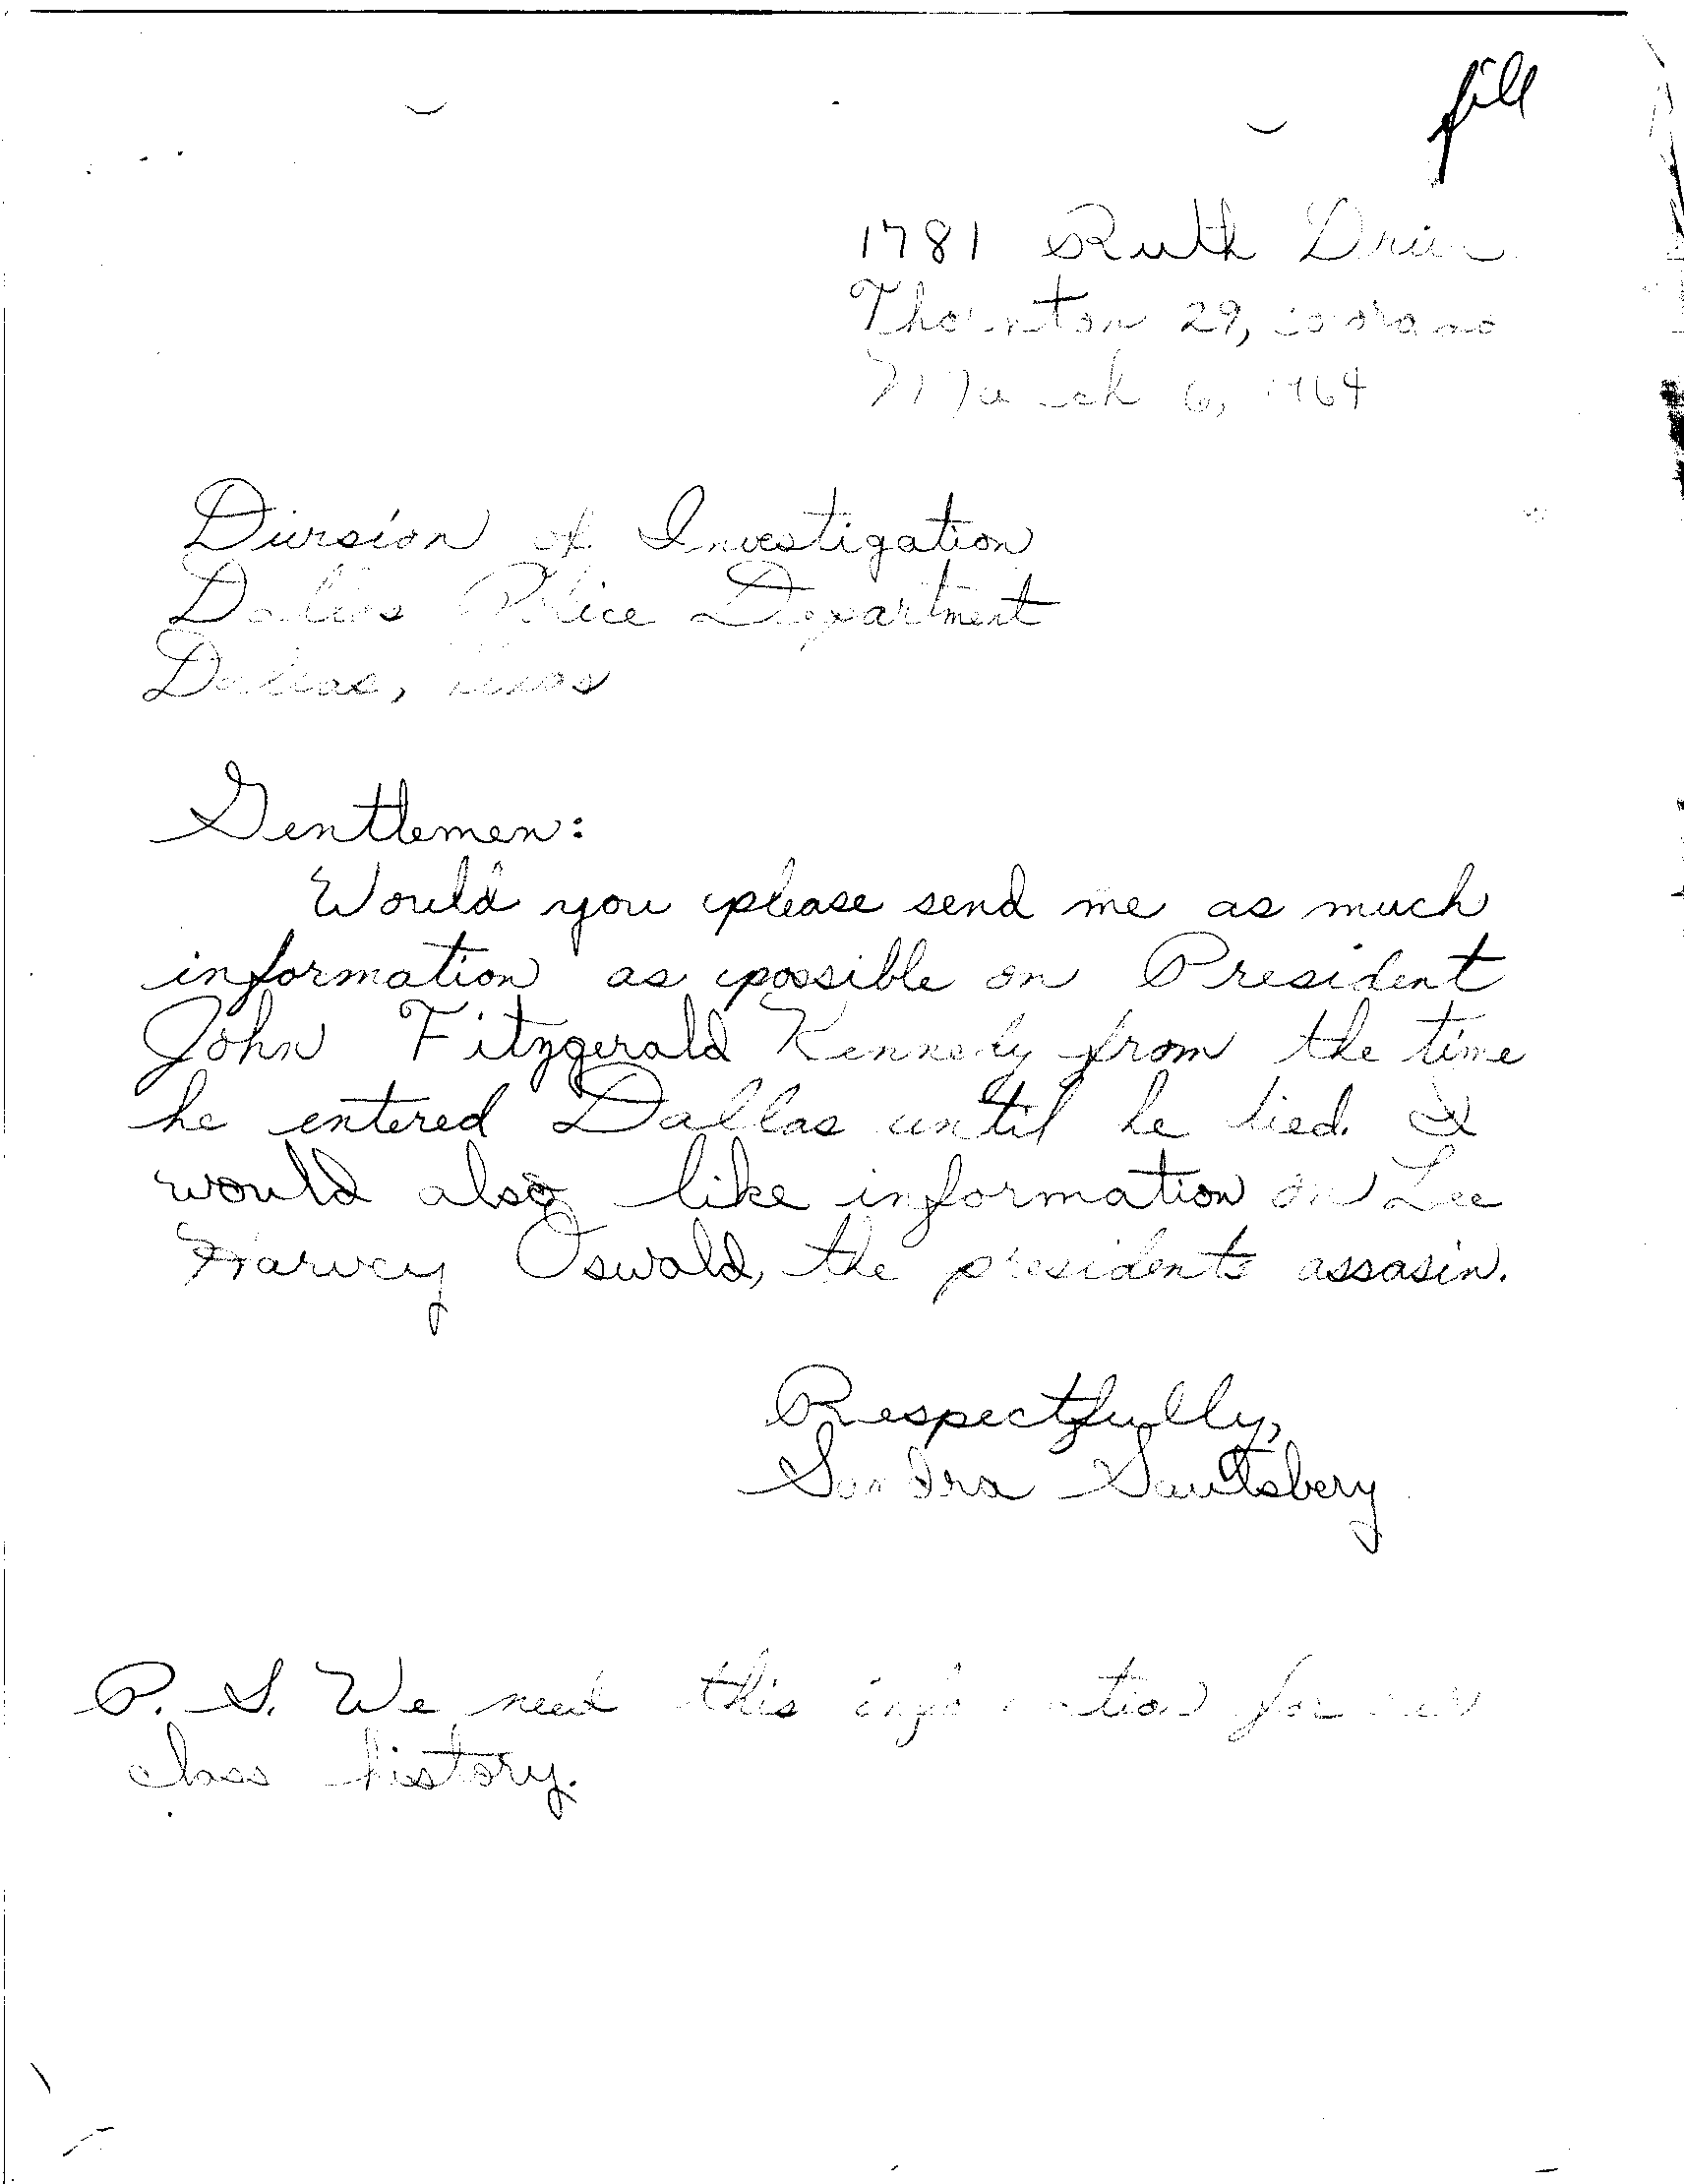 file
1781 Ruth Drive
Thornton 29, Colorado
March 6, 1964
Division of Investigation
Dallas Police Department
Dallas, Texas
Gentlemen:
Would you please send me as much
information as possible on President
John Fitzgerald Kennedy from the time
he entered Dallas until he died. I
would also like information on Lee
Harvey Oswald, the presidents assasin.
Respectfully,
Sandra Saultsbery
P. S. We need this information for our
class history.